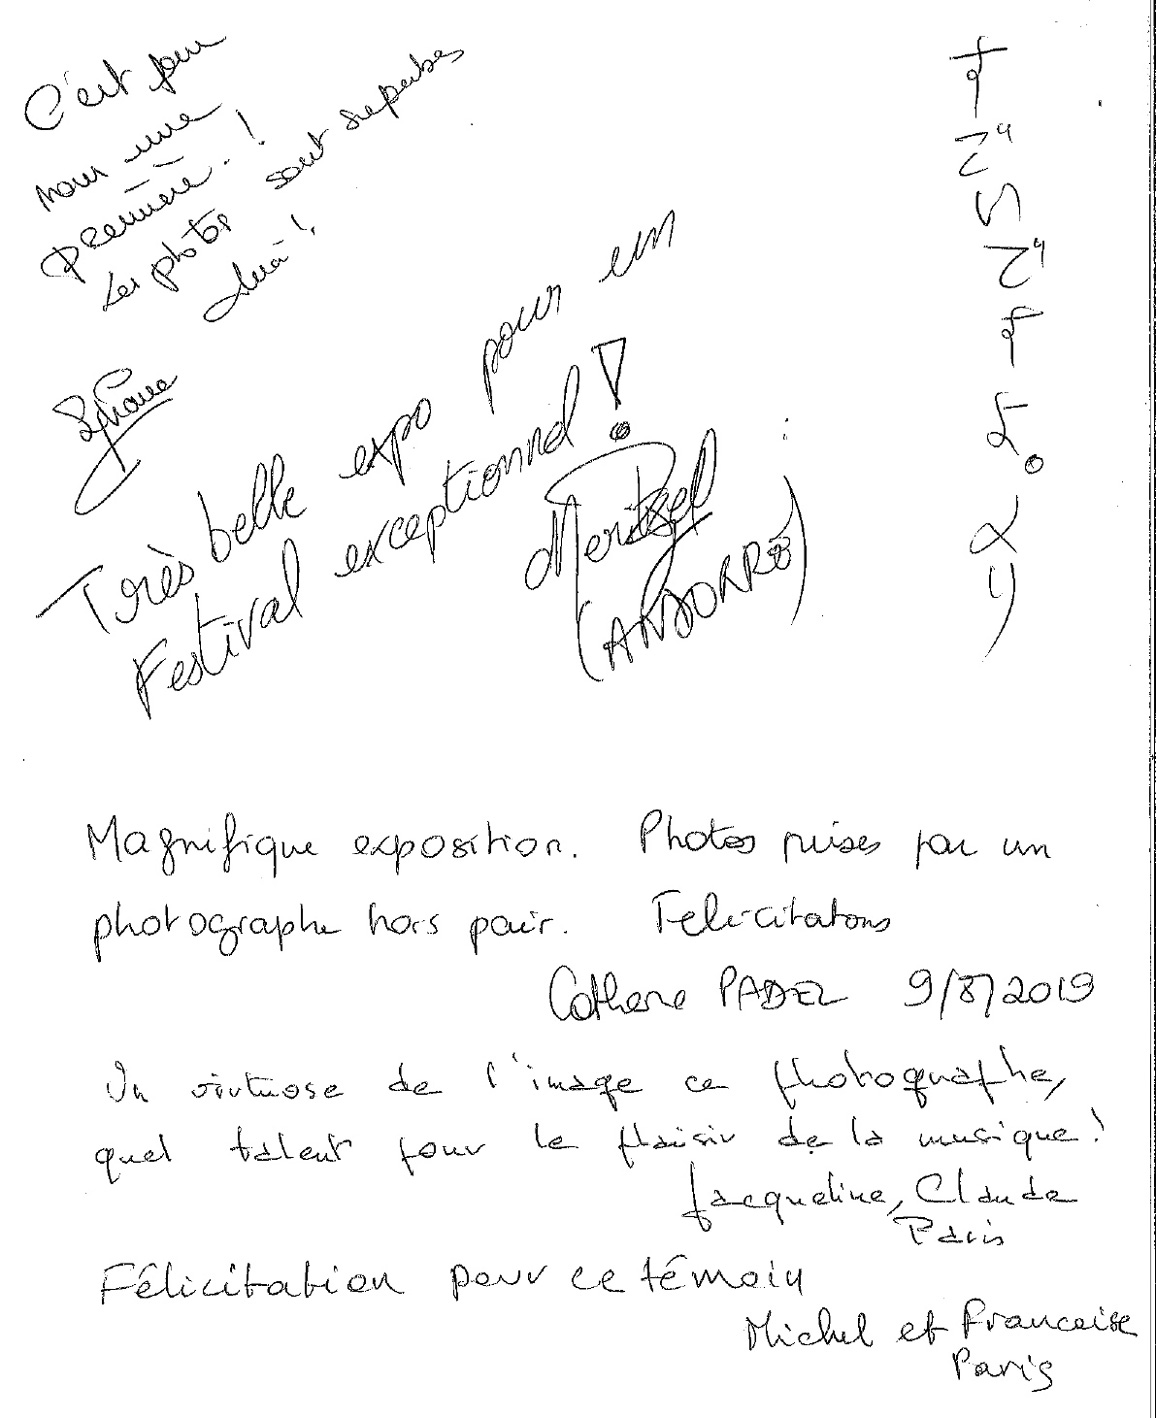 C'est pour
nous une
première !
Les photos sont superbes
Très belle expo pour un
Festival exceptionnel !
Meritxell
(ANDORRE)
Magnifique exposition. Photos prises par un
photographe hors pair. Felicitatons
Catherine PADEL 9/8/2019
Un virtuose de l'image ce photographe,
quel talent pour le plaisir de la musique !
Jacqueline, Claude
Paris
Félicitation pour ce témoin
Michel et Francoise
Paris